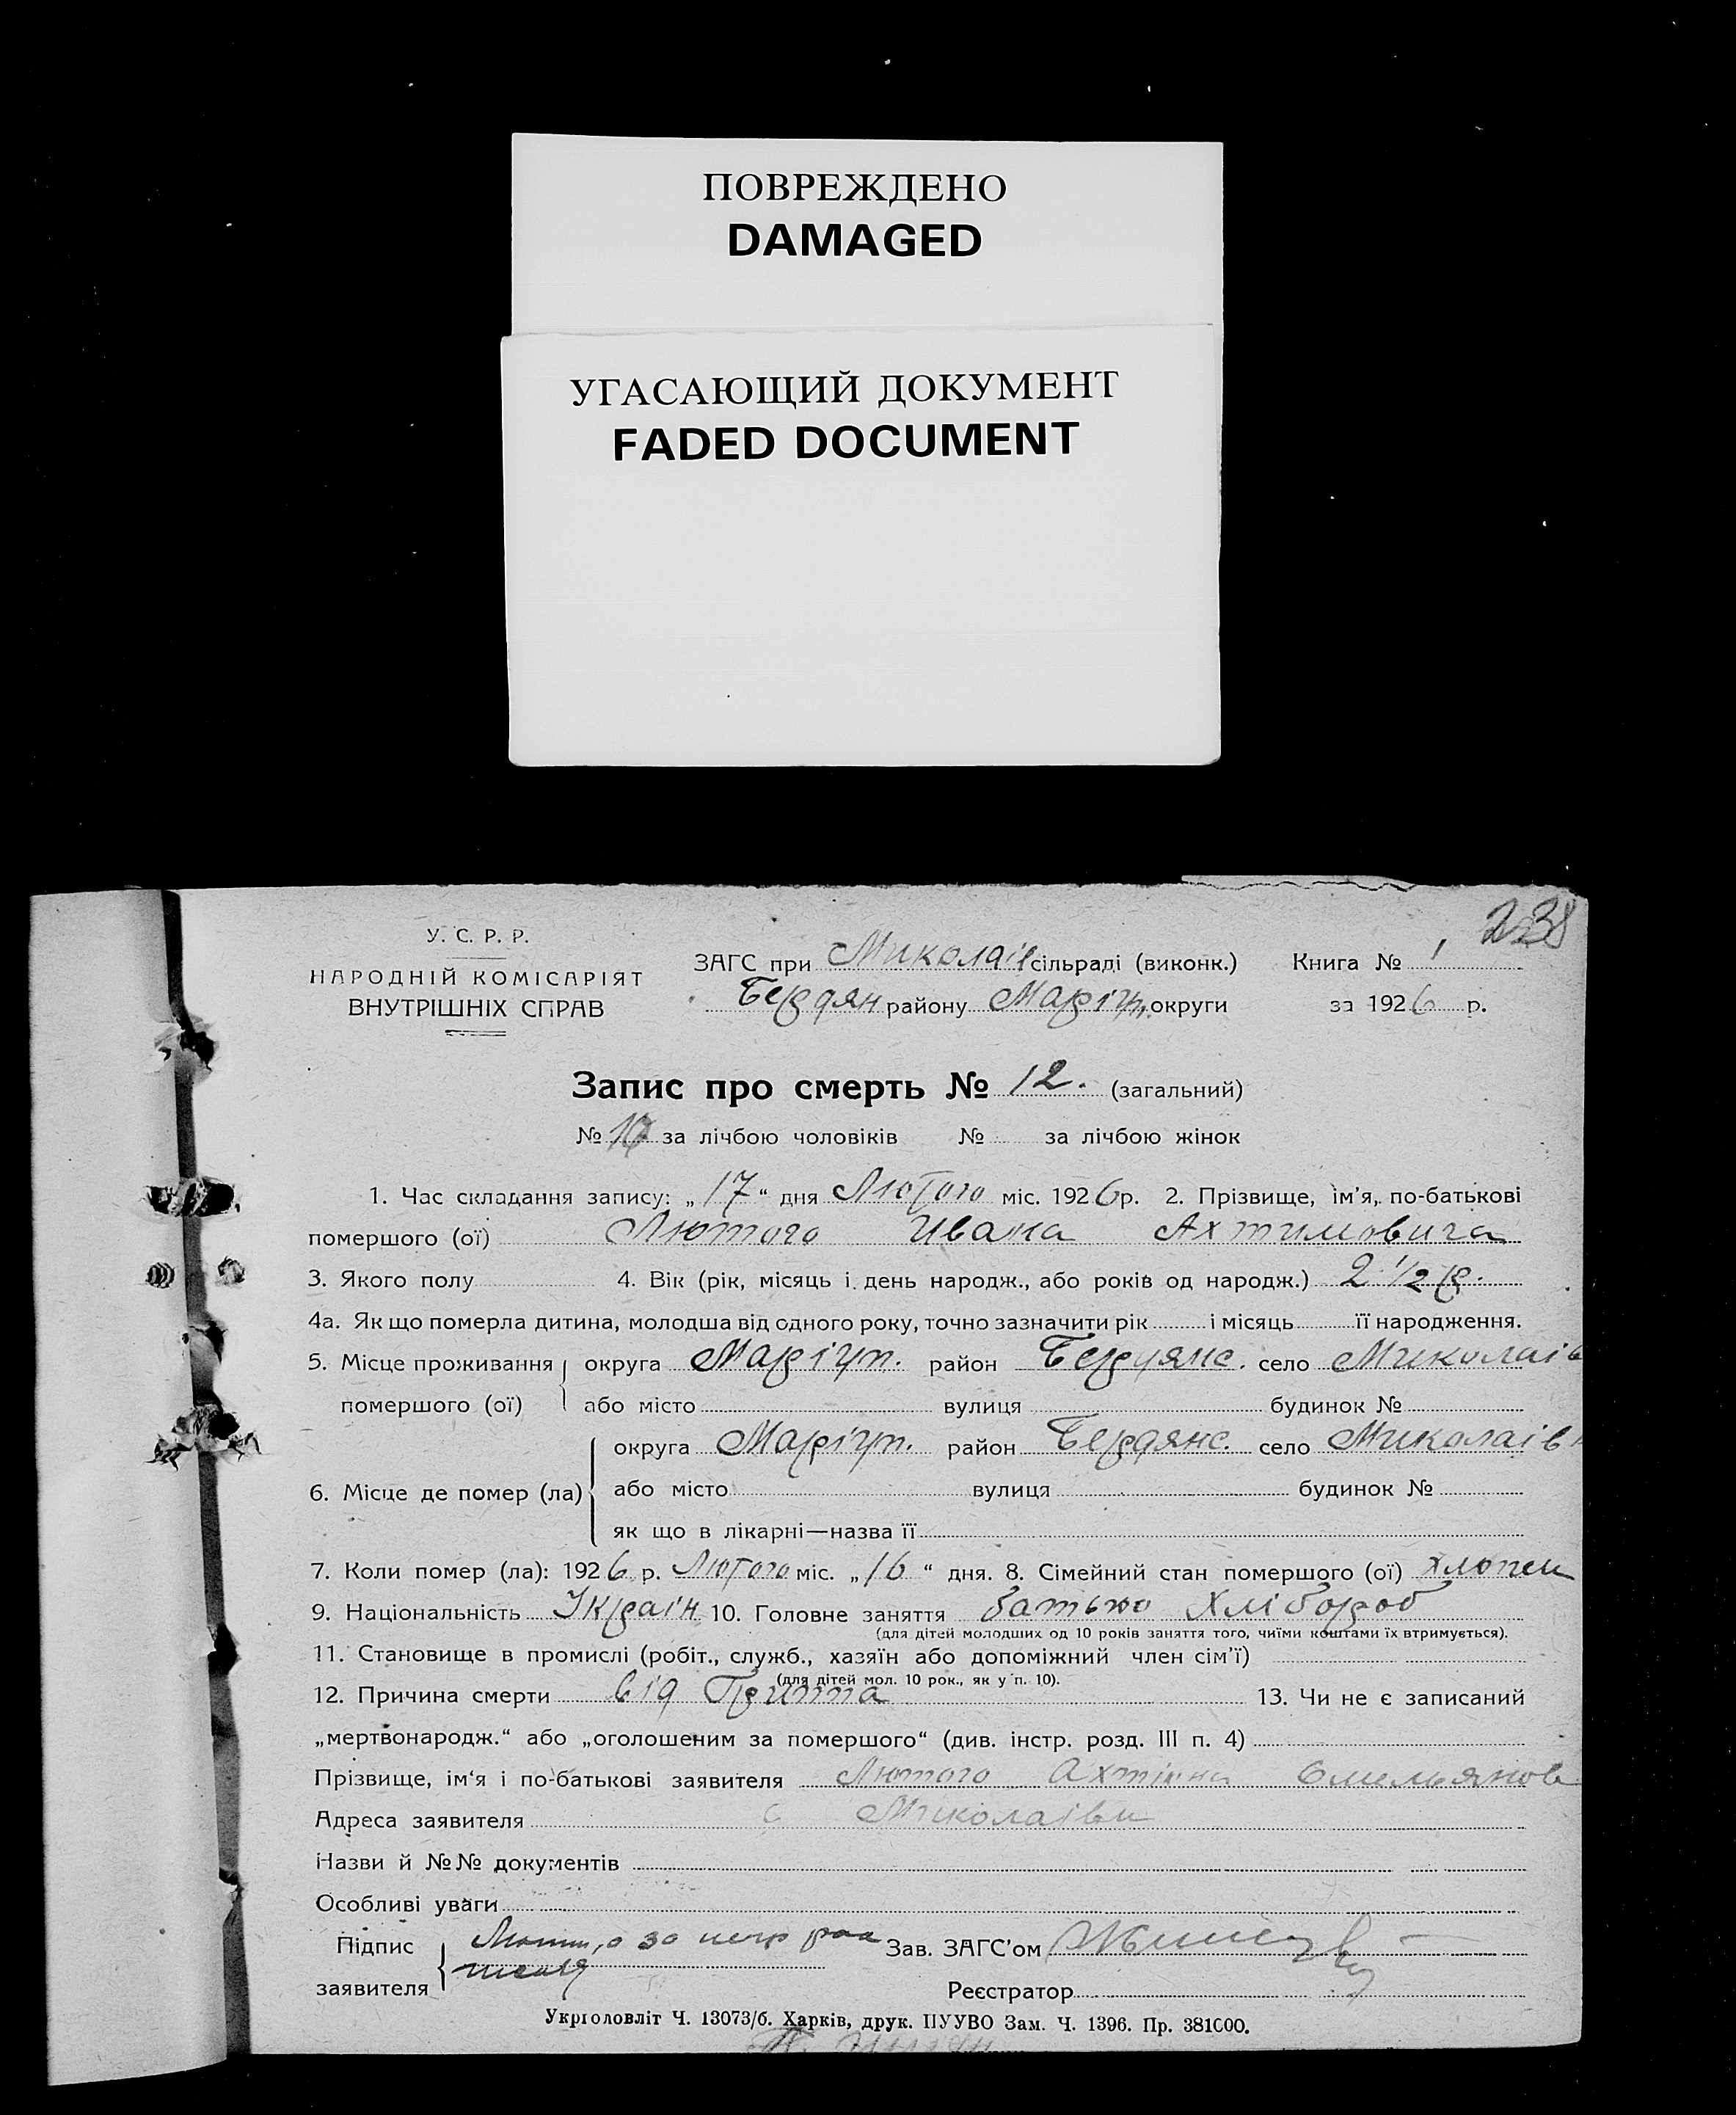 ПОВРЕЖДЕНО
DAMAGED
УГАСАЮЩИЙ ДОКУМЕНТ
FADED DOCUMENT
238
У. С. Р. Р.
НАРОДНІЙ КОМІСАРІЯТ
ВНУТРІШНІХ СПРАВ
ЗАГС при Миколаїв сільраді (виконк.) Книга № 1
Бердян району Маріуп. округи за 1926 р.
Запис про смерть № 12. (загальний)
№ 10 за лічбою чоловіків № за лічбою жінок
1. Час складання запису: „17“ дня Лютого міс. 1926 р. 2. Прізвище, ім'я, по-батькові
помершого (ої) Лютого Ивана Ахтимовича
3. Якого полу 4. Вік (рік, місяць і день народж., або років од народж.) 2 1/2 р.
4а. Як що померла дитина, молодша від одного року, точно зазначити рік і місяць її народження.
5. Місце проживання округа Маріуп. район Бердянс. село Миколаїв
помершого (ої) або місто вулиця будинок №
округа Маріуп. район Бердянс. село Миколаїв
6. Місце де помер (ла) або місто вулиця будинок №
як що в лікарні—назва її
7. Коли помер (ла): 1926 р. Лютого міс. „16“ дня. 8. Сімейний стан помершого (ої) хлопец
9. Національність Україн 10. Головне заняття батько Хлібороб
(для дітей молодших од 10 років заняття того, чиїми коштами їх втримується).
11. Становище в промислі (робіт., служб., хазяїн або допоміжний член сім'ї)
(для дітей мол. 10 рок., як у п. 10).
12. Причина смерти від Гриппа 13. Чи не є записаний
„мертвонародж.“ або „оголошеним за помершого“ (див. інстр. розд. III п. 4)
Прізвище, ім'я і по-батькові заявителя Лютого Ахтима Омельянов
Адреса заявителя с Миколаївки
Назви й №№ документів
Особливі уваги
Підпис заявителя Зав. ЗАГС'ом
Реєстратор
Укрголовліт Ч. 13073/б. Харків, друк. ПУУВО Зам. Ч. 1396. Пр. 381000.